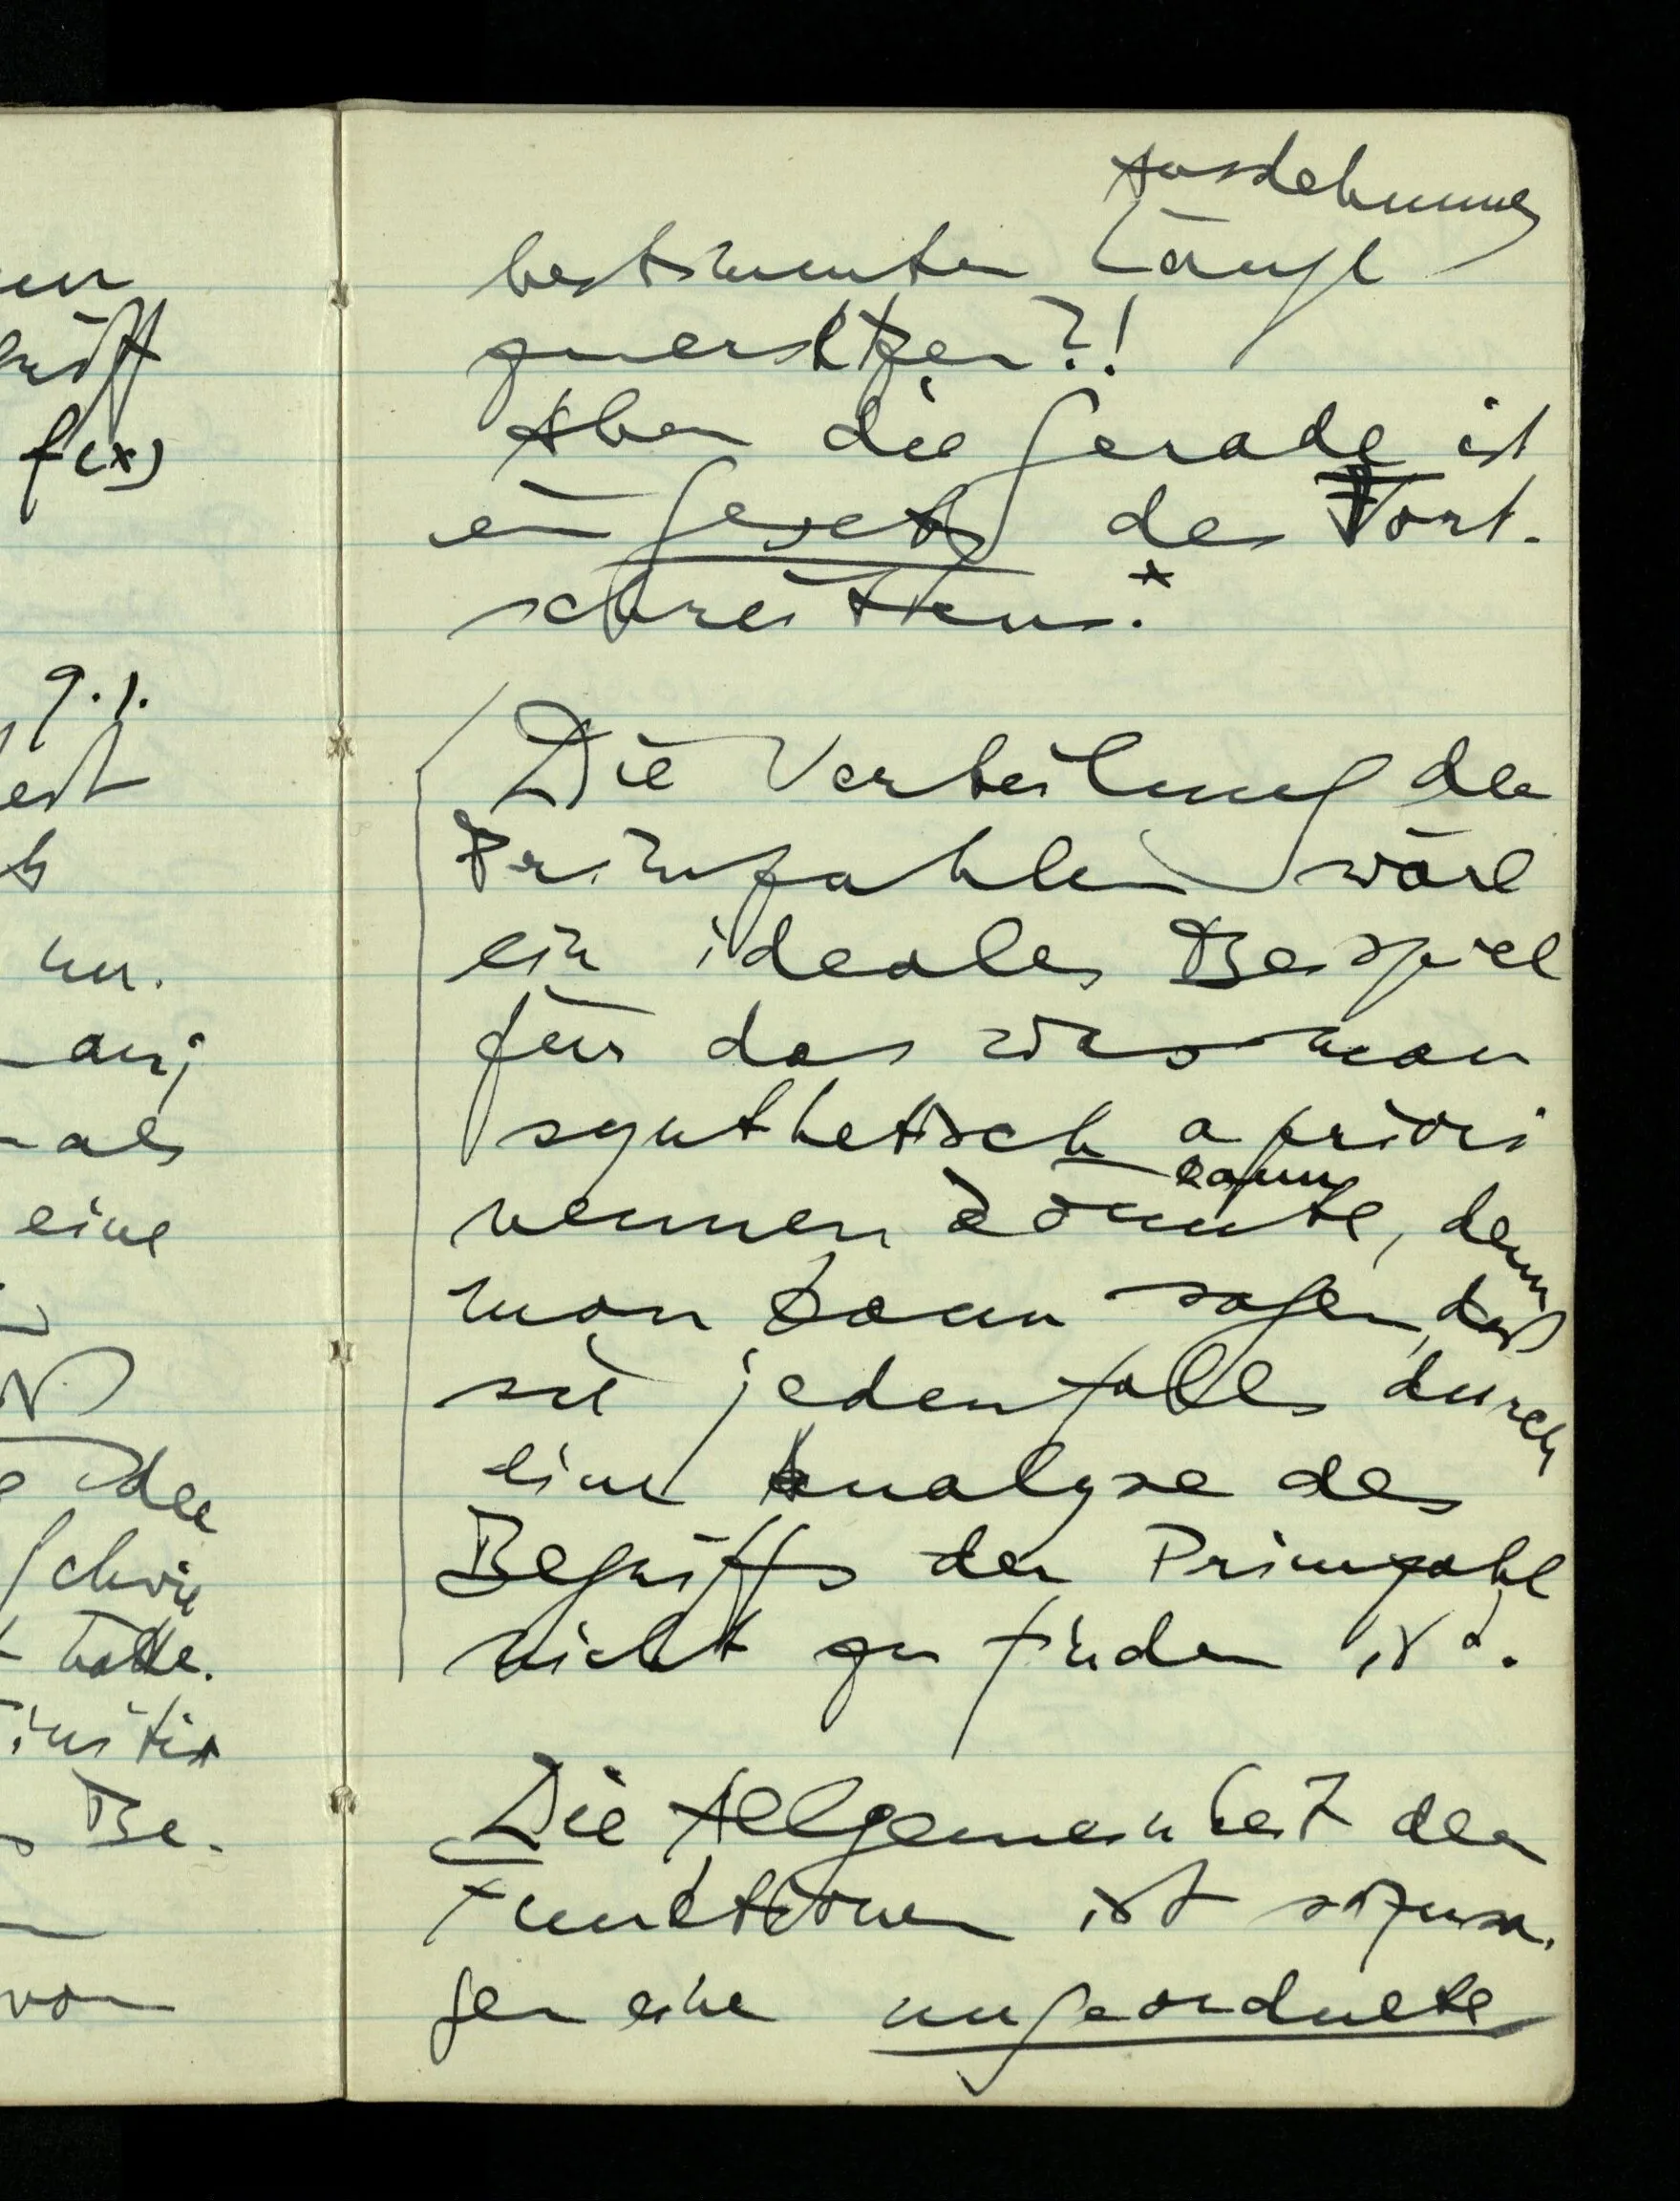 un
griff
f(x)
9.1.
est
b
nn.
anj
als
eine
Idee
schwie
hatte.
finitiv
Be-
von
Ausdehnung
bestimmter Länge
zuersetzen?!
Aber die Gerade ist
ein Gesetz des Fort-
schreitens.*
Die Verteilung der
Primzahlen wäre
ein ideales Beispiel
für das was man
synthetisch a priori
kann
nennen könnte, denn
man kann sagen, daß
sie jedenfalls durch
eine Analyse des
Begriffs der Primzahl
nicht zu finden ist.
Die Allgemeinheit der
Funktionen ist sozusa-
gen eine ungeordnete